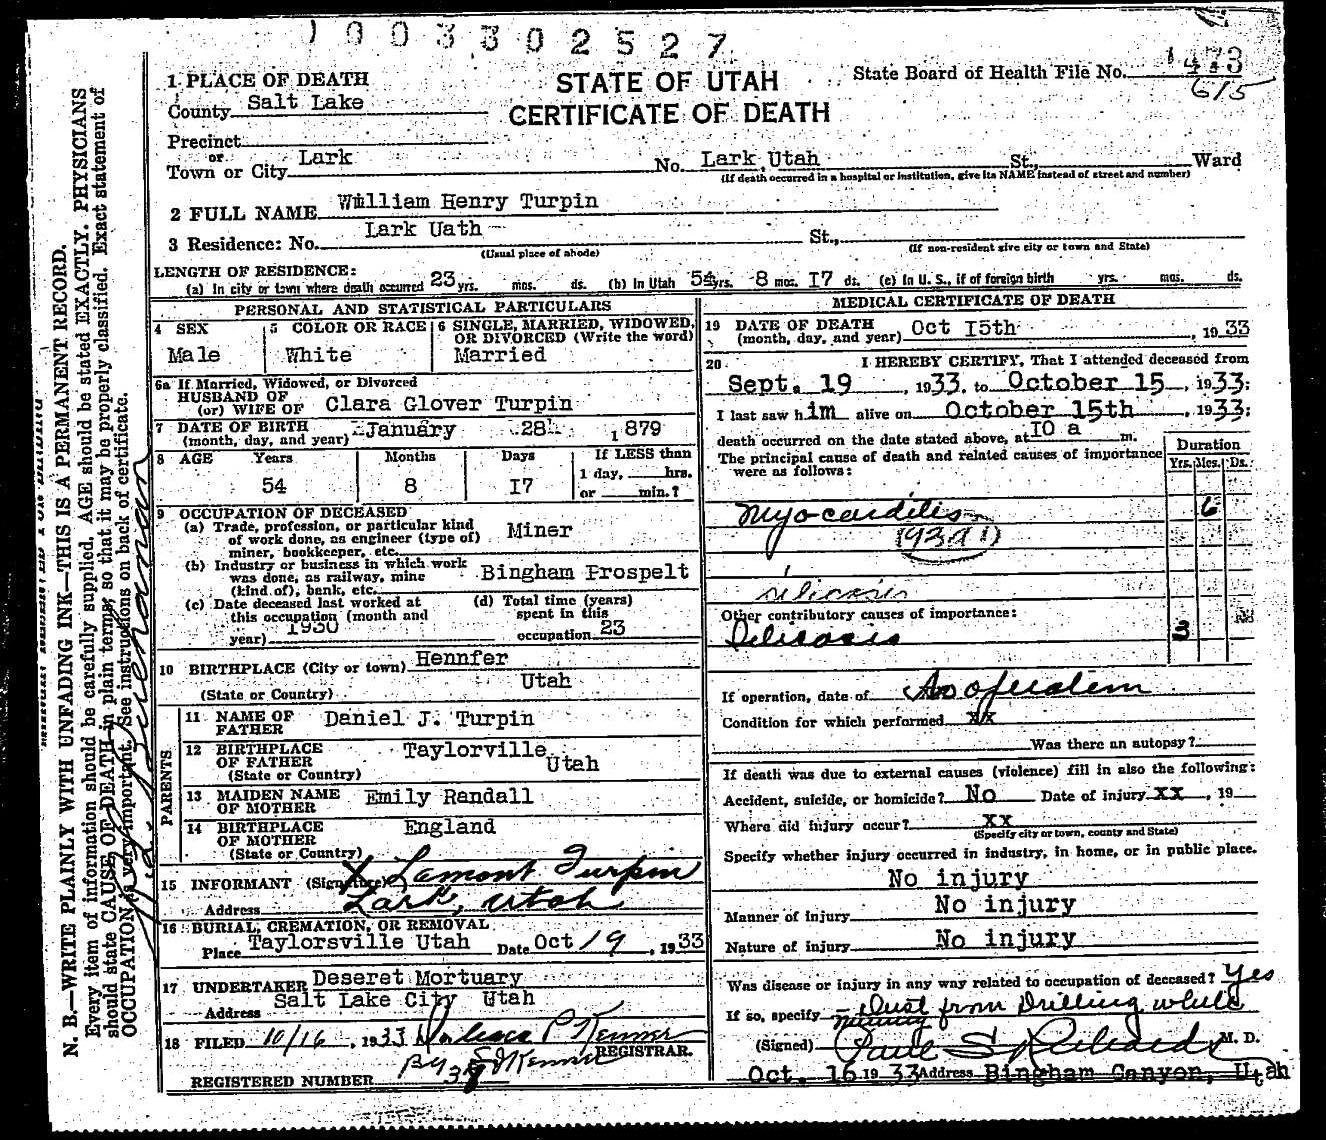 1003302527
STATE OF UTAH
CERTIFICATE OF DEATH
State Board of Health File No. 1473
615
1 PLACE OF DEATH
County Salt Lake
Precinct
or
Town or City Lark No. Lark, Utah St., Ward
(If death occurred in a hospital or institution, give its NAME instead of street and number)
2 FULL NAME William Henry Turpin
3 Residence: No. Lark Uath St.,
(Usual place of abode) (If non-resident give city or town and State)
LENGTH OF RESIDENCE:
(a) In city or town where death occurred 23 yrs. mos. ds. (b) In Utah 54 yrs. 8 mos. I7 ds. (c) In U. S., if of foreign birth yrs. mos. ds.
PERSONAL AND STATISTICAL PARTICULARS
4 SEX
Male
5 COLOR OR RACE
White
6 SINGLE, MARRIED, WIDOWED,
OR DIVORCED (Write the word)
Married
6a If Married, Widowed, or Divorced
HUSBAND OF
(or) WIFE OF Clara Glover Turpin
7 DATE OF BIRTH
(month, day, and year) January 28 1879
8 AGE Years Months Days If LESS than
1 day, hrs.
54 8 I7 or min.?
9 OCCUPATION OF DECEASED
(a) Trade, profession, or particular kind
of work done, as engineer (type of)
miner, bookkeeper, etc. Miner
(b) Industry or business in which work
was done, as railway, mine
(kind of), bank, etc. Bingham Prospelt
(c) Date deceased last worked at
this occupation (month and
year) 1930
(d) Total time (years)
spent in this
occupation 23
10 BIRTHPLACE (City or town) Hennfer
(State or Country) Utah
PARENTS
11 NAME OF
FATHER Daniel J. Turpin
12 BIRTHPLACE
OF FATHER
(State or Country) Taylorville Utah
13 MAIDEN NAME
OF MOTHER Emily Randall
14 BIRTHPLACE
OF MOTHER
(State or Country) England
15 INFORMANT (Signature) X Lamont Turpin
Address Lark, Utah
16 BURIAL, CREMATION, OR REMOVAL
Place Taylorsville Utah Date Oct 19, 1933
17 UNDERTAKER Deseret Mortuary
Address Salt Lake City Utah
18 FILED 10/16, 1933 P Kenner
REGISTRAR.
By Kenner
REGISTERED NUMBER 38
MEDICAL CERTIFICATE OF DEATH
19 DATE OF DEATH
(month, day, and year) Oct I5th, 1933
20 I HEREBY CERTIFY, That I attended deceased from
Sept. 19, 1933, to October 15, 1933;
I last saw him alive on October 15th, 1933;
death occurred on the date stated above, at IO a m.
The principal cause of death and related causes of importance
were as follows:
Duration
Yrs. Mos. Ds.
Myocarditis 6
(93A1)
silicosis
Other contributory causes of importance:
Silicosis 3
If operation, date of No operation
Condition for which performed xx
Was there an autopsy?
If death was due to external causes (violence) fill in also the following:
Accident, suicide, or homicide? No Date of injury xx, 19
Where did injury occur? xx
(Specify city or town, county and State)
Specify whether injury occurred in industry, in home, or in public place.
No injury
Manner of injury No injury
Nature of injury No injury
Was disease or injury in any way related to occupation of deceased? Yes
If so, specify Dust from Drilling while
mining
(Signed) Paul S Richards M. D.
Oct. 16 1933 Address Bingham Canyon, Utah
N. B.—WRITE PLAINLY WITH UNFADING INK—THIS IS A PERMANENT RECORD.
Every item of information should be carefully supplied. AGE should be stated EXACTLY. PHYSICIANS
should state CAUSE OF DEATH in plain terms, so that it may be properly classified. Exact statement of
OCCUPATION is very important. See instructions on back of certificate.